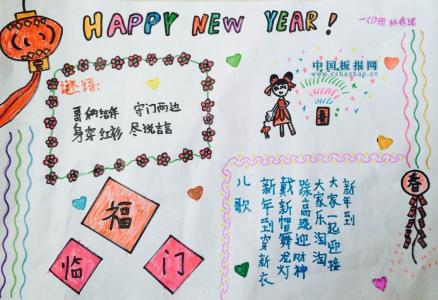 HAPPY NEW YEAR!
一(1)班
中国板报网
www.cnbanbao.cn
谜语:
哥俩结伴 守门两边
身穿红衫 尽说吉言
福
临
门
儿歌
新年到穿新衣
戴新帽舞龙灯
踩高跷迎财神
大家乐淘淘
大家一起迎接
新年到
春